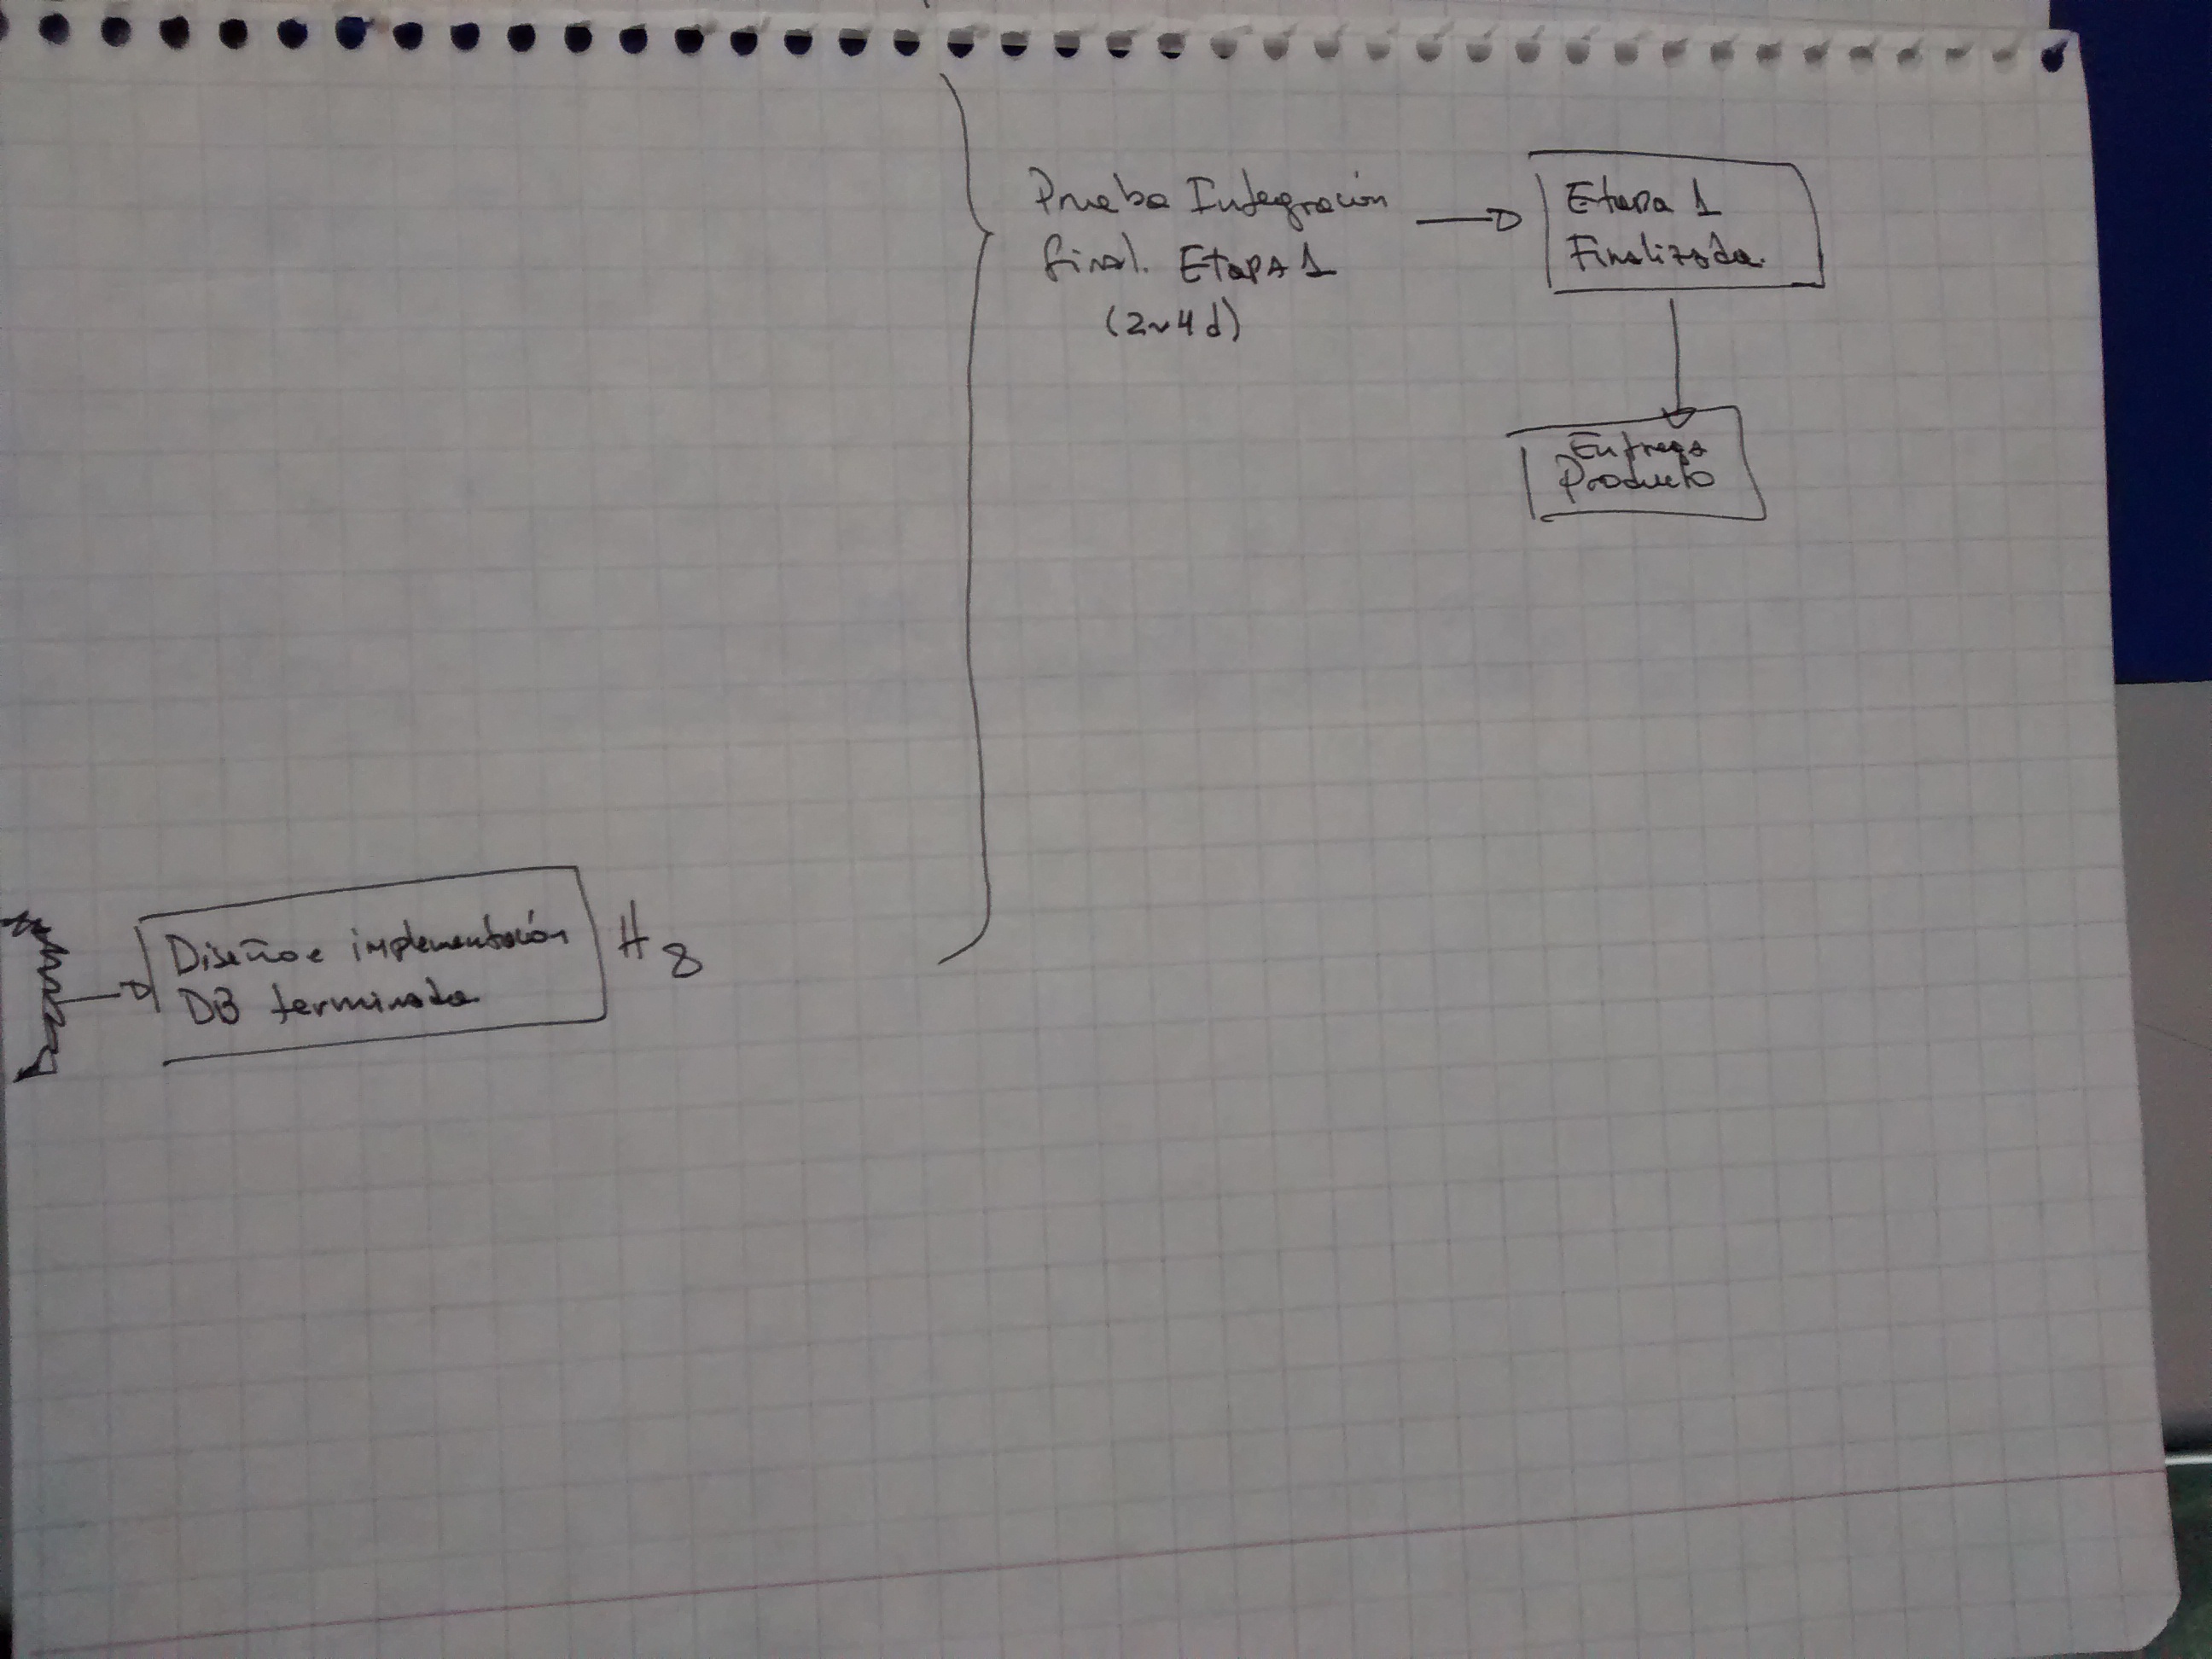 Prueba Integración
final. Etapa 1
(2~4 d)
Etapa 1
Finalizada.
Entrega
Producto
Diseño e implementación
DB terminada
H8